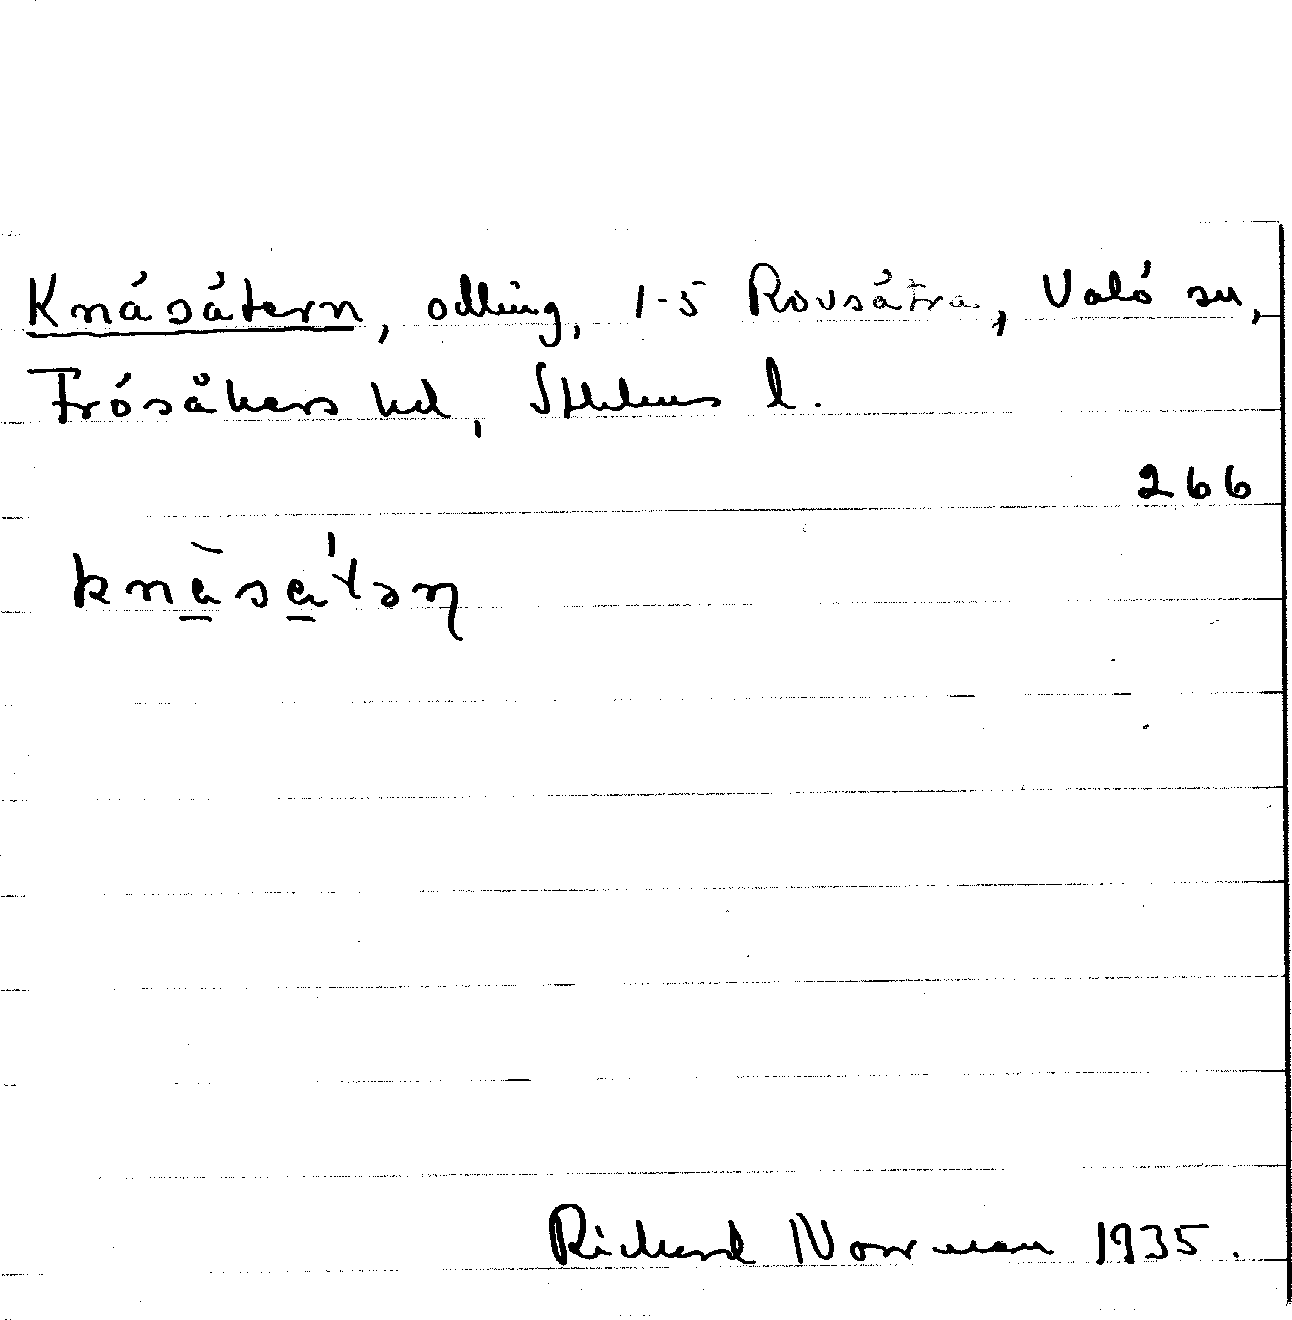 Knäsätern, odling, 1-5 Rovsätra, Valö sn,
Frösåkers hd, Sthlms l.
266
knà̱sa̱ˈtəɳ
Richard Norrman 1935.